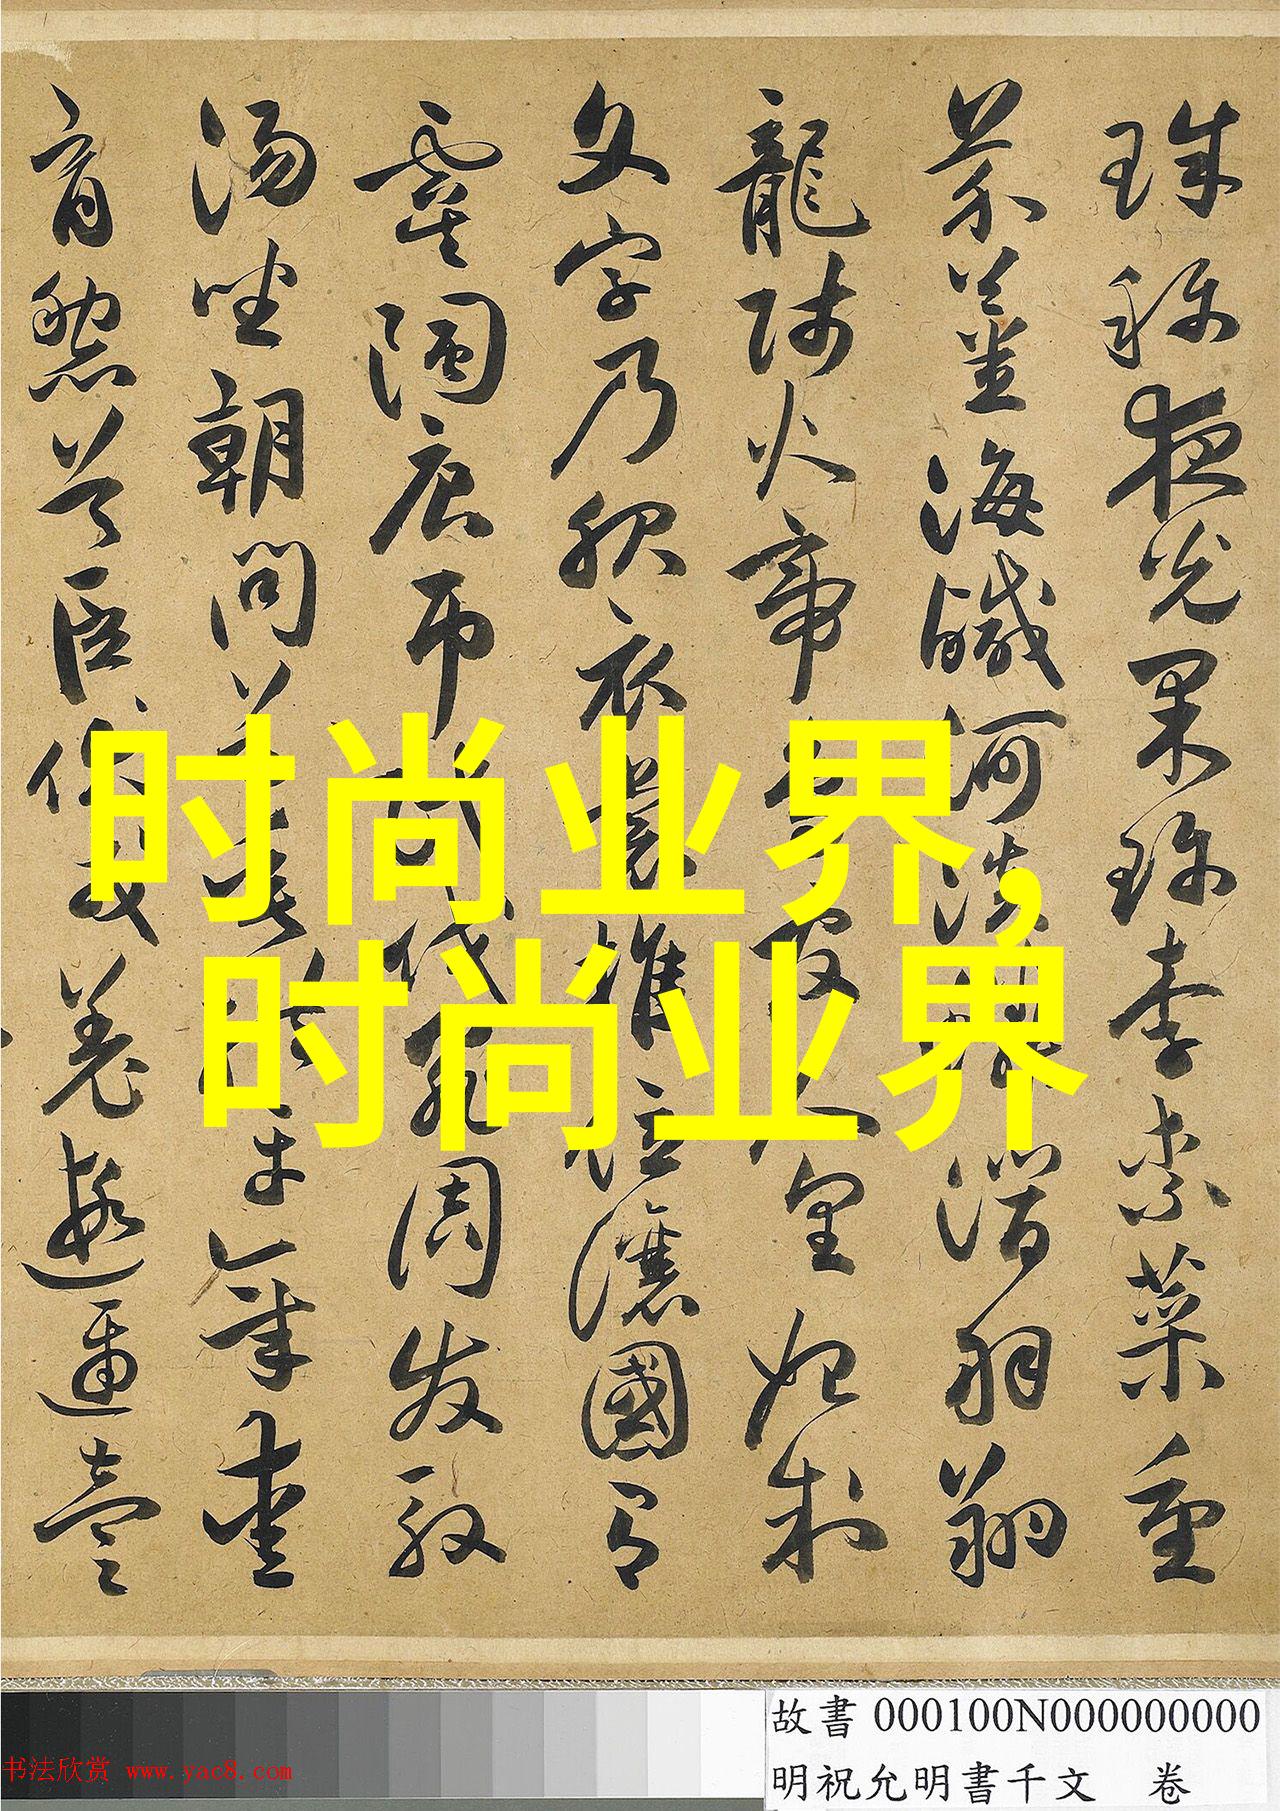 珠稱夜光果珍李柰菜重
芥薑海鹹河淡鱗潛羽翔
龍師火帝鳥官人皇始制
文字乃服衣裳推位讓國有
虞陶唐弔民伐罪周發殷
湯坐朝問道垂拱平章愛
育黎首臣伏戎羌遐邇壹
时尚业界,
时尚业界
故書 000100N000000000
明祝允明書千文 卷
书法欣赏 www.yac8.com